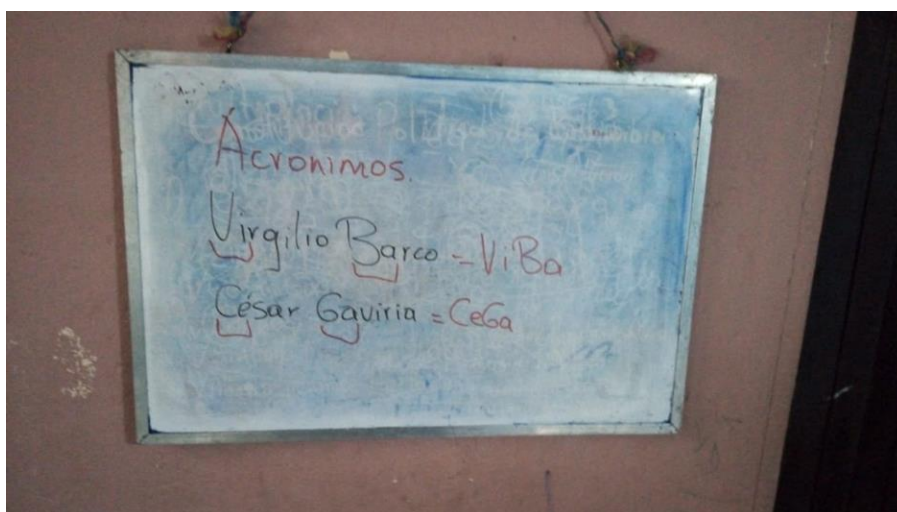 Acronimos.
Virgilio Barco = ViBa
César Gaviria = CeGa